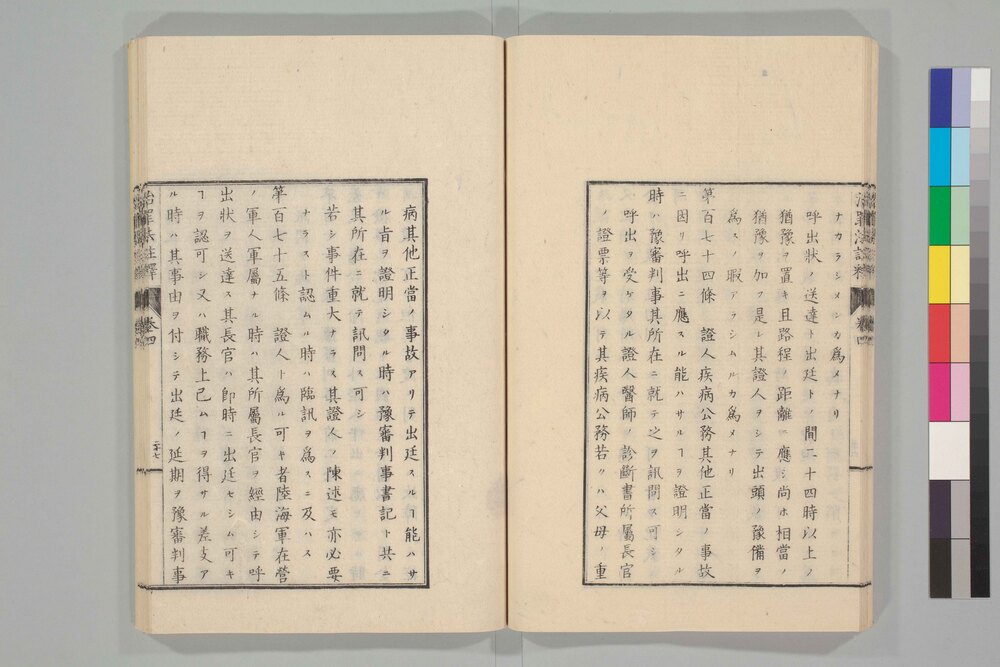 ナカラシメンカ為メナリ
呼出狀ノ送達ト出廷トノ間二十四時以上ノ
猶豫ヲ置キ且路程ノ距離ニ應シ尚ホ相當ノ
猶豫ヲ加フ是レ其證人ヲシテ出頭ノ豫備ヲ
為スノ暇アラシムルカ為メナリ
第百七十四條 證人疾病公務其他正當ノ事故
ニ因リ呼出ニ應スル能ハサルヿヲ證明シタル
時ハ豫審判事其所在ニ就テ之ヲ訊問ス可シ
呼出ヲ受ケタル證人醫師ノ診斷書所屬長官
ノ證票等ヲ以テ其疾病公務若クハ父母ノ重
治罪法註釋 卷四
病其他正當ノ事故アリテ出廷スルヿ能ハサ
ル肯ヲ證明シタル時ハ豫審判事書記ト共ニ
其所在ニ就テ訊問ス可シ
若シ事件重大ナラス其證人ノ陳述モ亦必要
ナラスト認ムル時ハ臨訊ヲ為スニ及ハス
第百七十五條 證人ト為ル可キ者陸海軍在營
ノ軍人軍屬ナル時ハ其所屬長官ヲ經由シテ呼
出狀ヲ送達ス其長官ハ即時ニ出廷セシム可キ
ヿヲ認可シ又ハ職務上已ムヿヲ得サル差支ア
ル時ハ其事由ヲ付シテ出廷ノ延期ヲ豫審判事
治罪法註釋 卷四